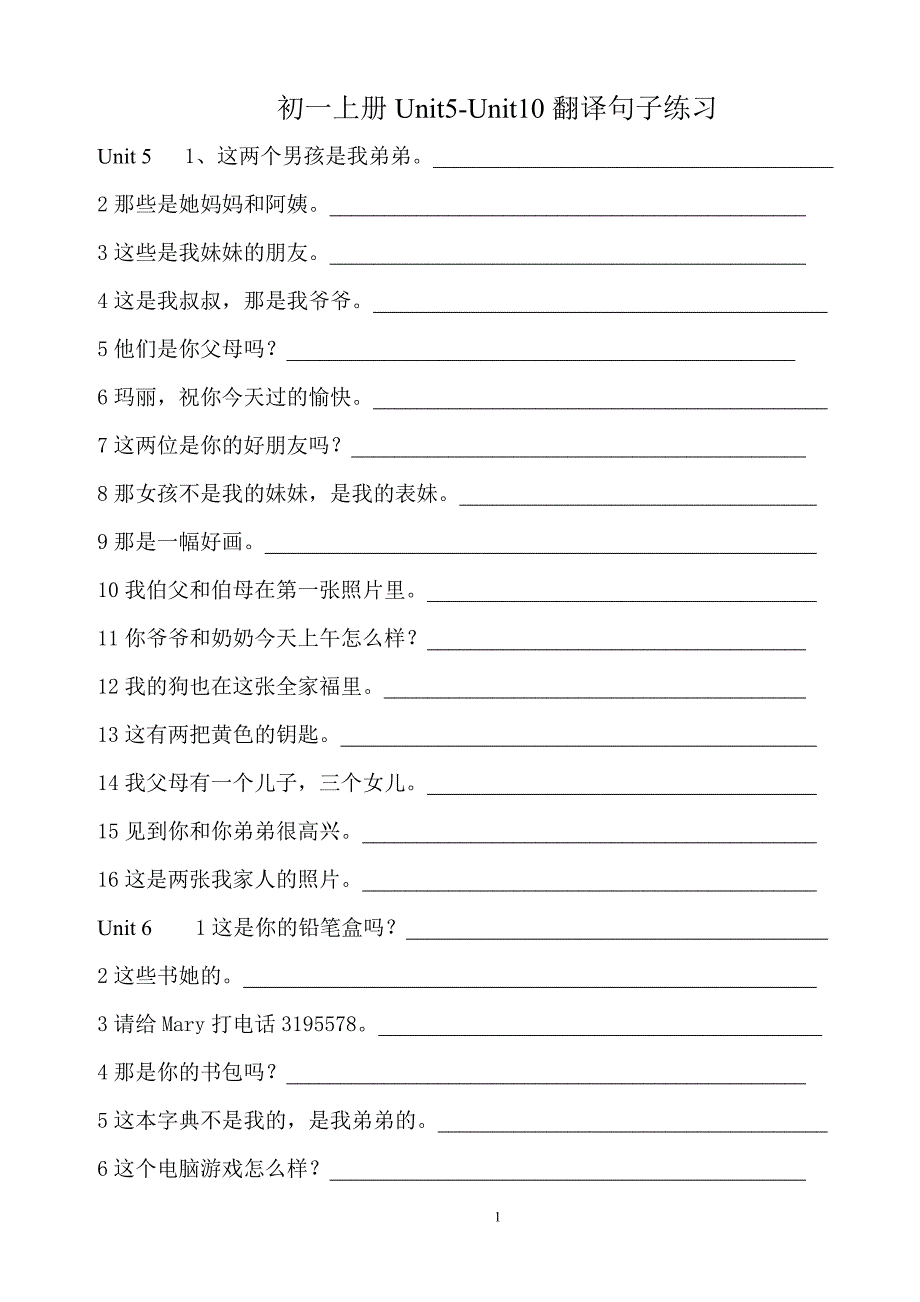 初一上册 Unit5-Unit10 翻译句子练习
Unit 5 1、这两个男孩是我弟弟。
2 那些是她妈妈和阿姨。
3 这些是我妹妹的朋友。
4 这是我叔叔，那是我爷爷。
5 他们是你父母吗？
6 玛丽，祝你今天过的愉快。
7 这两位是你的好朋友吗？
8 那女孩不是我的妹妹，是我的表妹。
9 那是一幅好画。
10 我伯父和伯母在第一张照片里。
11 你爷爷和奶奶今天上午怎么样？
12 我的狗也在这张全家福里。
13 这有两把黄色的钥匙。
14 我父母有一个儿子，三个女儿。
15 见到你和你弟弟很高兴。
16 这是两张我家人的照片。
Unit 6 1 这是你的铅笔盒吗？
2 这些书她的。
3 请给 Mary 打电话 3195578。
4 那是你的书包吗？
5 这本字典不是我的，是我弟弟的。
6 这个电脑游戏怎么样？
1